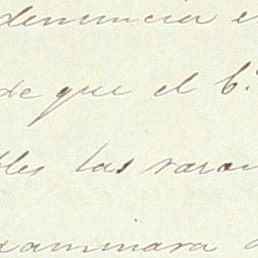 denuncia e
de que el C.
bles las razon
xaminara a